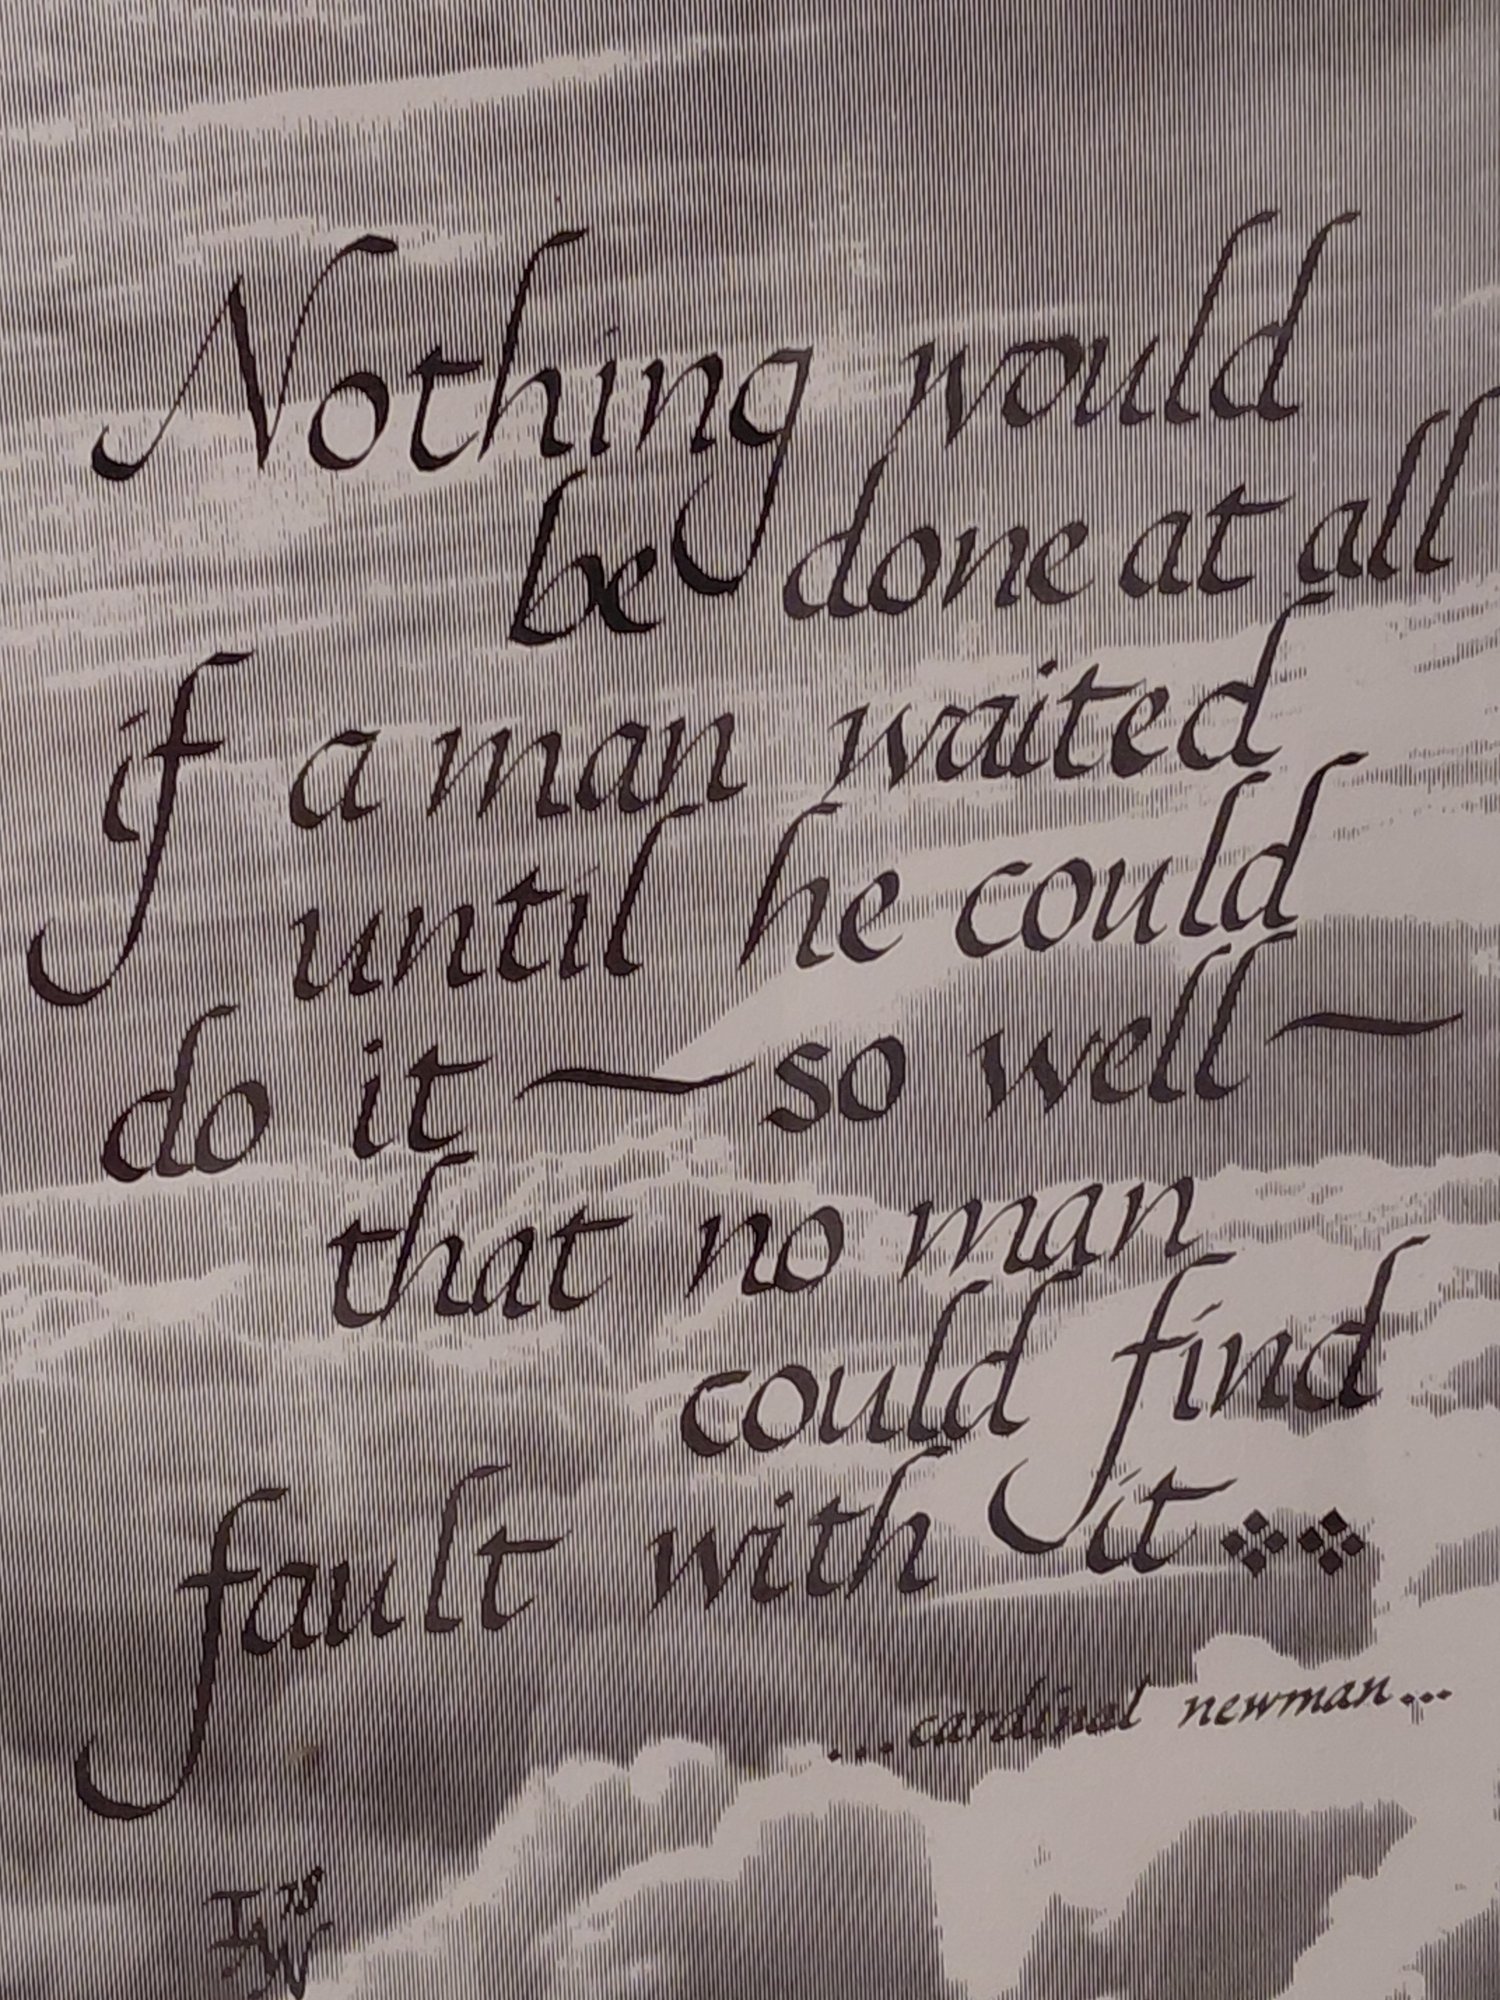 Nothing would
be done at all
if a man waited
until he could
do it ~ so well ~
that no man
could find
fault with it
...cardinal newman...